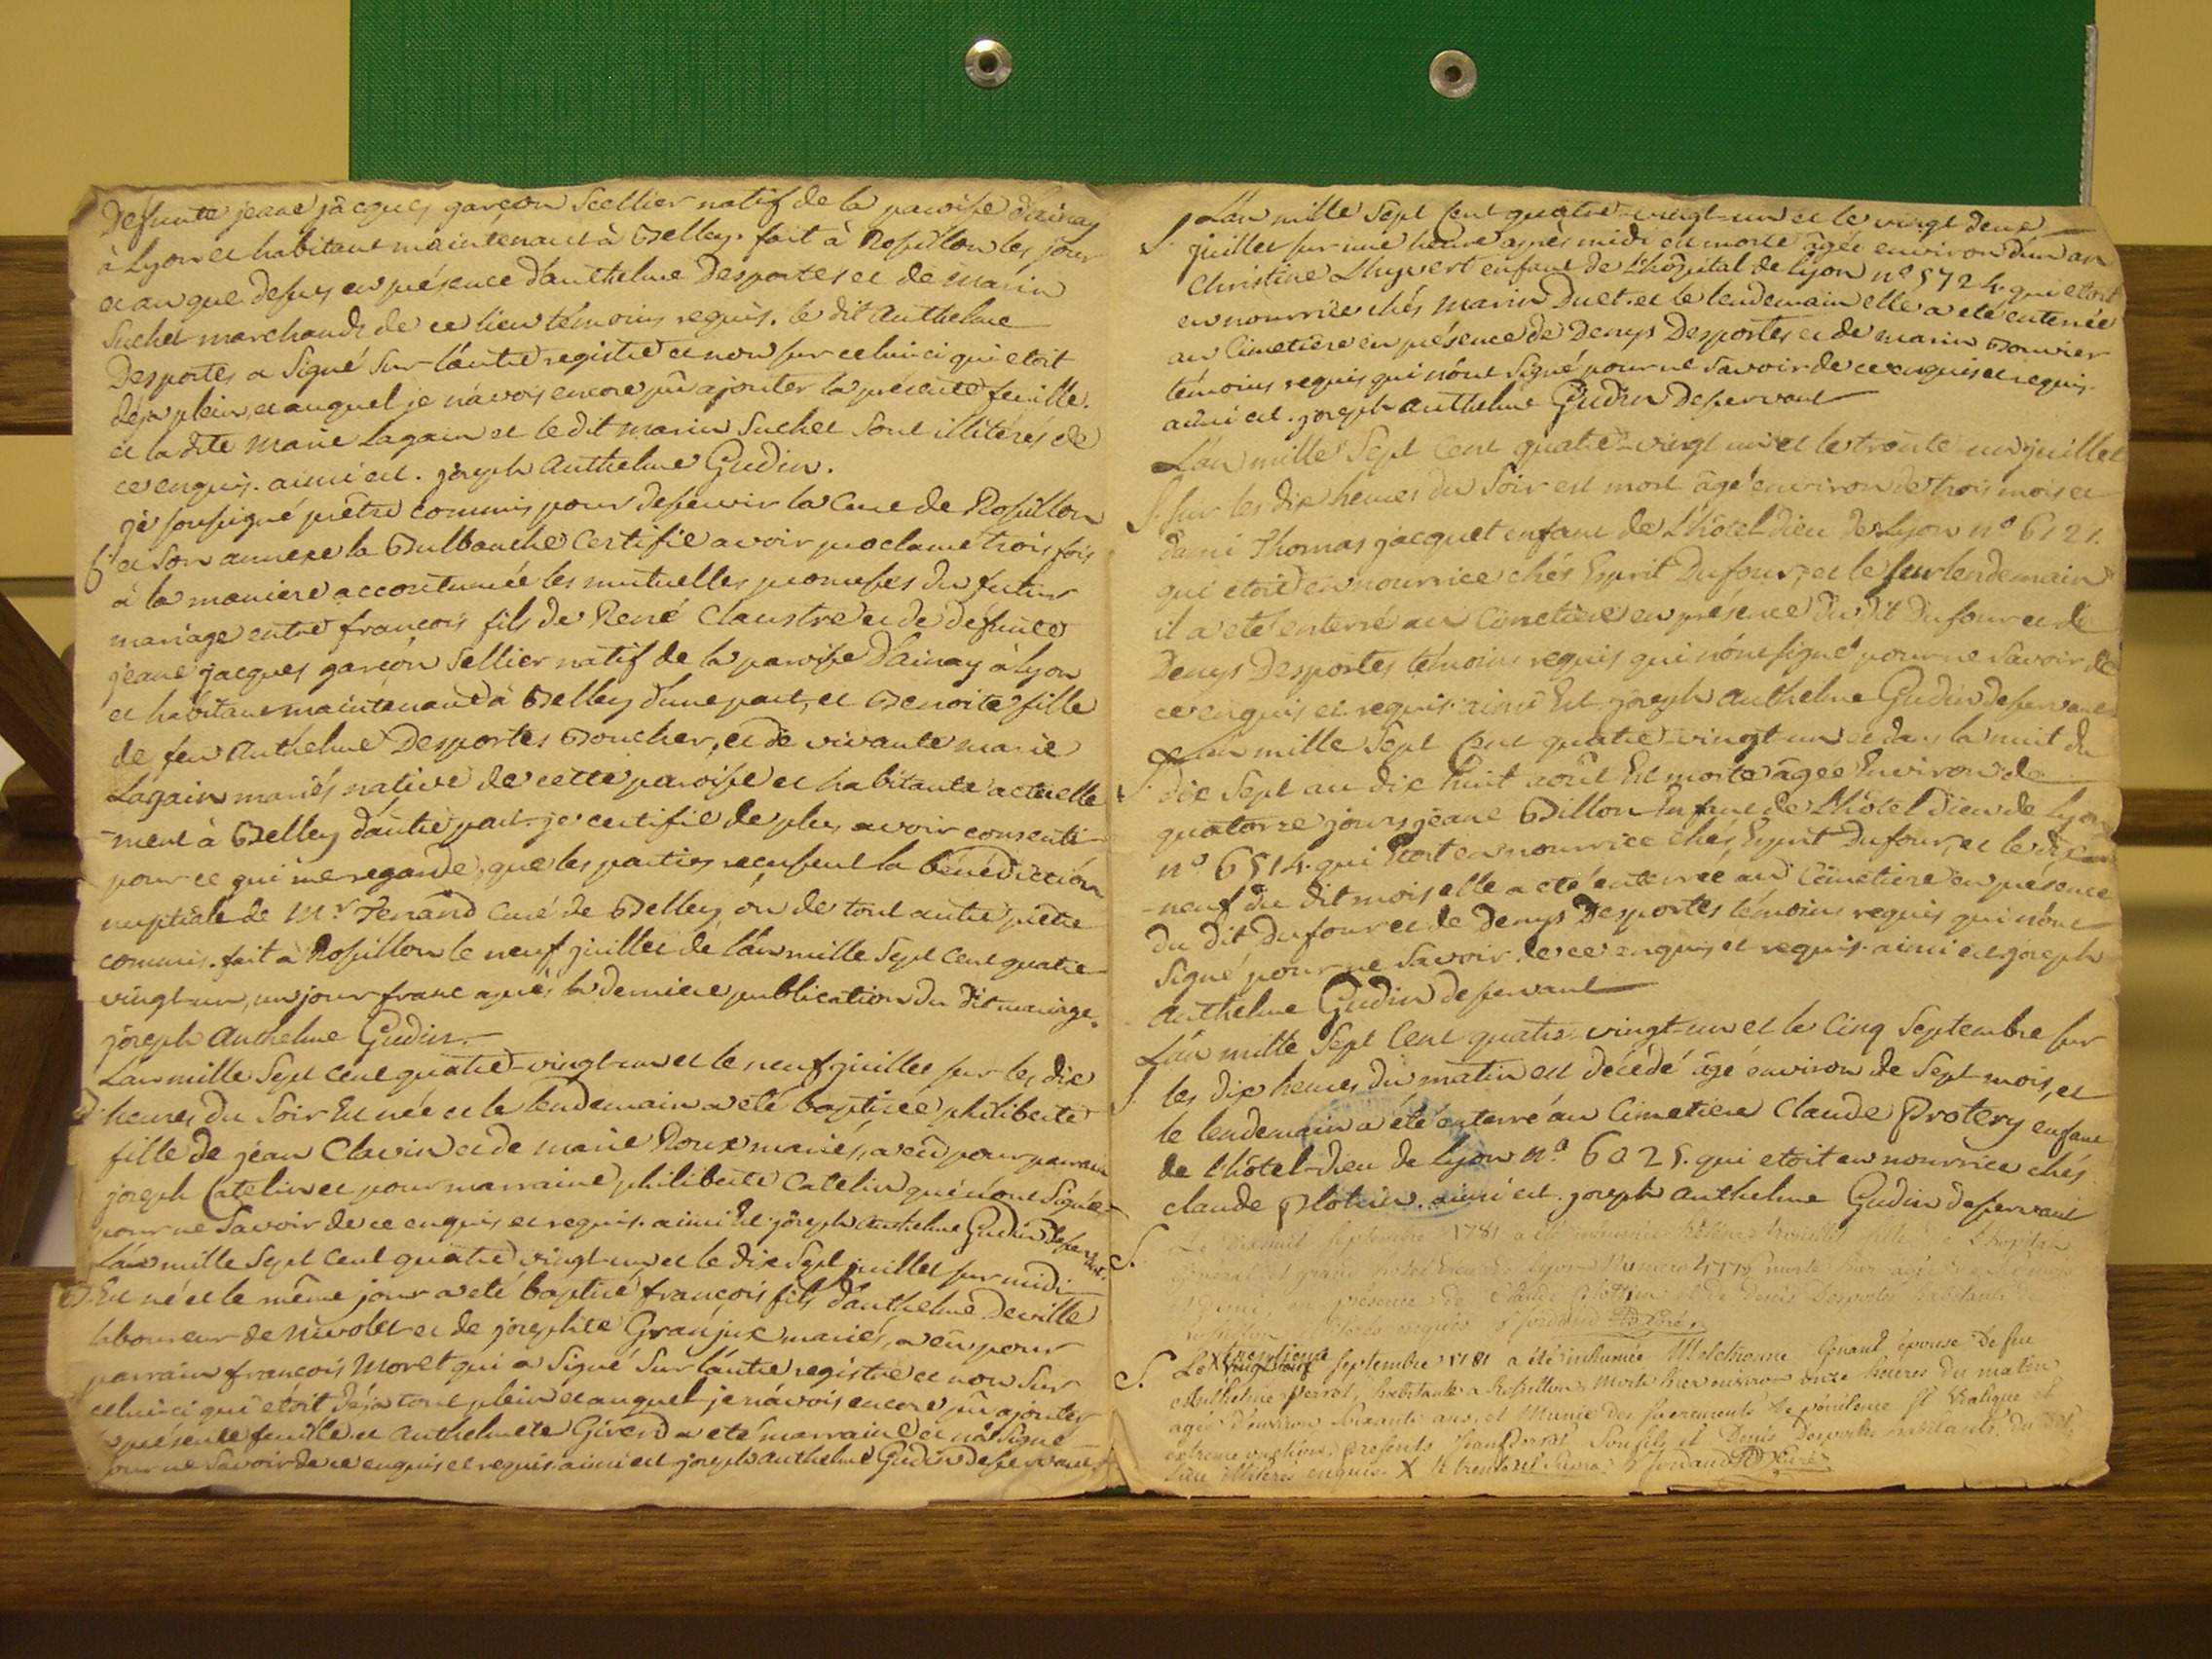 Defunte jeane jàcques garçon Scellier natif de la paroisse d'ainay
à Lyon et habitant maintenant à Belley. fait à Rossillon les jour
et an que dessus en présence d'anthelme Desportes et de marin
Suchet marchands de ce lieu témoins requis. le dit Anthelme
Desportes a signé sur l'autre registre et non sur celui-ci qui etoit
déja plein, et auquel je n'avois encore pû ajouter la présente feuille.
et la dite marie Lagain et le dit marin Suchet sont illitérés de
ce enquis. ainsi est. joseph Anthelme Gudin.
je soussigné prêtre commis pour desservir la Cure de Rossillon
et son annexe la Bulbanche certifie avoir proclamé trois fois
à la maniere accoutumée les mutuelles promesses du futur
mariage entre francois fils de René Claustre et de défunte
jeane jacques garçon Sellier natif de la paroisse d'ainay à Lyon
et habitant maintenant à Belley d'une part, et Benoite fille
de feu Anthelme Desportes Boucher, et de vivante marie
Lagain mariés native de cette paroisse et habitante actuelle
-ment à Belley d'autre part. je certifie de plus avoir consenti
pour ce qui me regarde, que les parties reçussent la bénédiction
nuptiale de Mr Ferrand Curé de Belley, ou de tout autre prêtre
commis. fait à Rossillon le neuf juillet de l'an mille Sept Cent quatre
vingt-un, un jour franc après la derniere publication du dit mariage.
joseph Anthelme Gudin.
L'an mille Sept cent quatre-vingt-un et le neuf juillet sur les dix
heures du Soir Est née et le lendemain a eté baptisée philiberte
fille de jean Clavin et de marie Roux mariés, a eu pour parrain
joseph Catelin et pour marraine philiberte Catelin qui n'ont signé
pour ne Savoir de ce enquis et requis. ainsi Est. joseph Anthelme Gudin desservant.
L'an mille Sept Cent quatre vingt-un et le dix Sept juillet sur midi
Est né et le même jour a eté baptisé françois fils d'anthelme Deville
laboureur de Nivolet et de josephte Granjux mariés, a eu pour
parrain francois Moret qui a signé sur l'autre registre et non sur
celui-ci qui étoit déja tout plein et auquel je n'avois encore pû ajouter
la présente feuille. et Anthelmete Girerd a eté marraine et n'a signé
pour ne Savoir de ce enquis et requis. ainsi est joseph anthelme Gudin desservant
S. L'an mille Sept Cent quatre-vingt-un et le vingt deux
juillet sur une heure après midi est morte âgée environ d'un an
Christine Lhuyvert enfant de l'hôpital de Lyon n° 5724. qui etoit
en nourrice chés marin Duet. et le lendemain elle a eté enterrée
au Cimetiere en présence de Denys Desportes et de marin Bouvier
témoins requis qui n'ont Signé pour ne Savoir de ce enquis et requis.
ainsi est. joseph anthelme Gudin desservant
L'an mille Sept Cent quatre-vingt un et le trente-un juillet
S. sur les dix heures du Soir est mort âgé environ de trois mois et
demi Thomas jacquet enfant de L'hôtel dieu de Lyon n° 6121.
qui etoit en nourrice chés Esprit Dufour, et le surlendemain
il a eté enterré au Cimetière en présence du dit Dufour et de
Denys Desportes témoins requis qui n'ont signé pour ne savoir de
ce enquis et requis. ainsi Est. joseph Anthelme Gudin desservant
S. L'an mille Sept Cent quatre-vingt-un et dans la nuit du
dix Sept au dix huit août Est morte âgée Environ de
quatorze jours jeane Billon Enfant de L'hôtel dieu de Lyon
n° 6514. qui Etoit en nourrice chés Esprit Dufour, et le dix
-neuf du dit mois elle a eté enterrée au Cimetiere en présence
du dit Dufour et de Denys Desportes témoins requis qui n'ont
signé pour ne Savoir. de ce enquis et requis. ainsi est joseph
Anthelme Gudin desservant
L'an mille Sept Cent quatre-vingt-un et le Cinq Septembre sur
S. les dix heures du matin est décédé âgé environ de Sept mois, et
le lendemain a été enterré au Cimetiere Claude Protery enfant
de l'hôtel-dieu de Lyon n° 6025. qui etoit en nourrice chés
claude Plotin. ainsi est. joseph Anthelme Gudin desservant
S. Le dixhuit Septembre 1781 a été inhumée fille de L'hopital
général et grand hotel Dieu de Lyon Numero morte hier agée
et demi, en présence de Claude Plotin et de denis Desportes habitants
Rossillon illiterés enquis Jordand Curé
S. Le X vingt neuf trentieme Septembre 1781 a été inhumée épouse de feu
Anthelme Perrot, habitante a Rossillon, morte hier environ onze heures du matin
agée d'environ soixante ans, et Munie des sacrements de pénitence St Viatique et
extreme onction. presents Jean Perrot son fils et Denis Desportes habitants du dit
lieu illiterés enquis. X le trente Jordand Curé